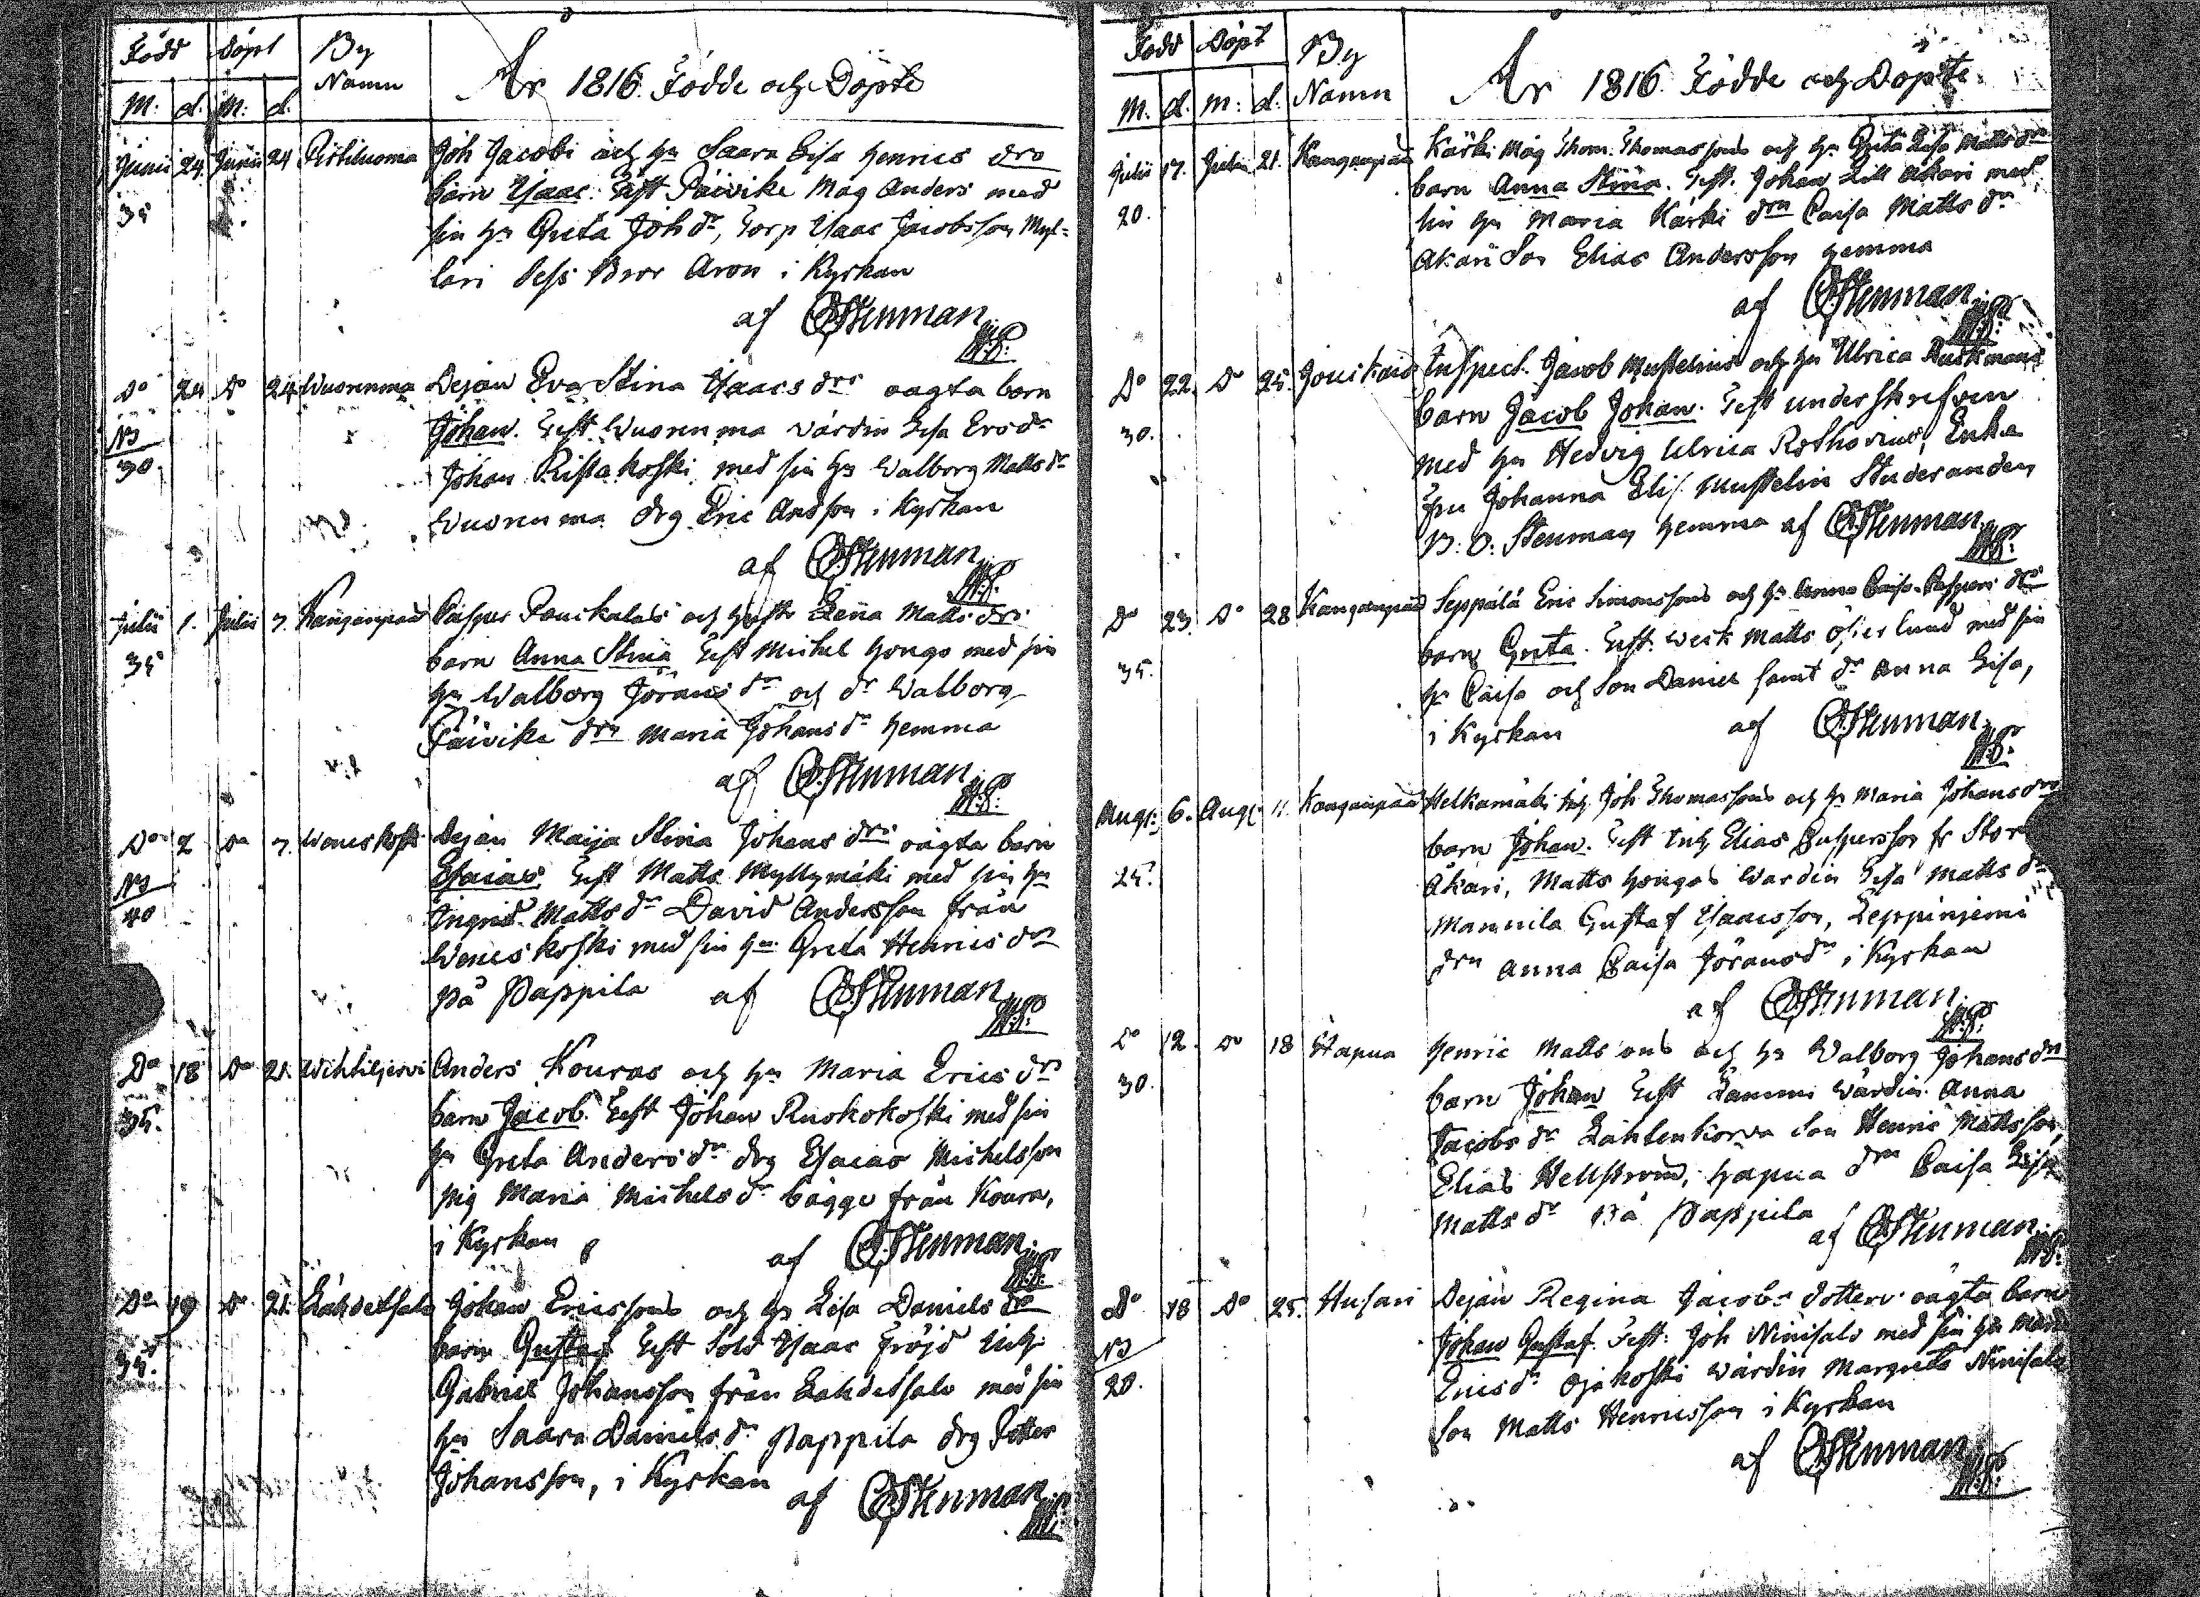 Född Döpt By
Namn
M: d. M: d.
År 1816 Födde och Döpte
Junii 24. Junii 24 Ristiluoma Joh Jacobi och hu Saara Lisa Henrics dra
35 barn Isaac. Test Päivike Måg Anders med
sin hu Greta Joh dr, Torp Isaac Jacobsson Myl-
lari dess Bror Aron i Kyrkan
af Stenman
Do 24 Do 24 Wuorenma Dejan Eva Stina Isaacs drs oägta barn
N3 Johan. Test. Wuorenma Värdin Lisa Ersdr
30. Johan Ristakoski med sin hu Walborg Matts dr
Wuorenma drg Eric Andsson i Kyrkan
af Stenman
Julii 1. Julii 7. Kangenpää Casper Pouskalas och hustr Lena Matts drs
35 barn Anna Stina Test Michel Hongo med sin
hu Walborg Jörans dr och dr Walborg
Päivike drn Maria Johans dr hemma
af Stenman
Do 2 Do 7. Wenes koski Dejan Maija Stina Johans drs oägta barn
N3 Esaias Test Matts Myllymäki med sin hu
40 Ingrid Matts dr David Andersson från
Weneskoski med sin hu Greta Henrics dr
på Pappila af Stenman
Do 18 Do 21. Wihteljervi Anders Kouras och hu Maria Erics drs
35. barn Jacob. Test Johan Ruokokoski med sin
hu Greta Anders dr drg Esaias Michelsson
pig Maria Michels dr bägge från Koura,
i Kyrkan af Stenman
Do 19 Do 21. Lahdetsalo Johan Ericssons och hu Lisa Daniels drs
35. barn Gustaf Test Sold Isaac Fröjd Inh:
Gabriel Johansson från Lahdetsalo med sin
hu Saara Daniels dr Pappila drg Petter
Johansson, i Kyrkan af Stenman
Född Döpt By
M. d. M: d. Namn
År 1816 Födde och Döpte
Julii 17. Julii 21. Kangenpää Kärki Måg Thom. Thomassons och hu Greta Lisa Matts dr
20. barn Anna Stina. Test. Johan Lill Akari med
sin hu Maria Kärki drn Caisa Matts dr
Akari Son Elias Andersson hemma
af Stenman
Do 22. Do 25. Inspect. Jacob Mustelins och hu Ulrica
30. barn Jacob Johan. Test underskrefven
med hu Hedvig Ulrica Rothovius, Enka
fru Johanna Elis. Mustelin Studeranden
B: O: Stenman hemma af Stenman
Do 23. Do 28 Kangenpää Seppälä Eric Simonssons och hu Anna Caisa Caspers drs
35. barn Greta. Test. Werk Matts Österlund med sin
hu Caisa och Son Daniel samt dr Anna Lisa,
i Kyrkan af Stenman
Aug: 6. Aug: 11. Kangenpää Helkamäki Inh. Joh Thomassons och hu Maria Johans drs
25. barn Johan. Test Inh Elias Caspersson fr Stor
Akari, Matts Hongos Wärdin Lisa Matts dr
Mannila Gustaf Isaacsson, Leppinjemi
drn Anna Caisa Jörans dr i Kyrkan
af Stenman
Do 12. Do 18 Hapua Henric Mattsons och hu Walborg Johans drn
30. barn Johan Test Lammi Wärdin Anna
Jacobs dr Lähtenkorva Son Henric Mattsson,
Elias Hellström, Hapua drn Caisa Lisa
Matts dr På Pappila
af Stenman
Do 18 Do 25. Husari Dejan Regina Jacobs dotters oägta barn
N3 Johan Gustaf. Test: Joh Niinisalo med sin hu Maria
20. Erics dr Ojakoski Wärdin Margreta Niinisalo
Son Matts Henricsson i Kyrkan
af Stenman